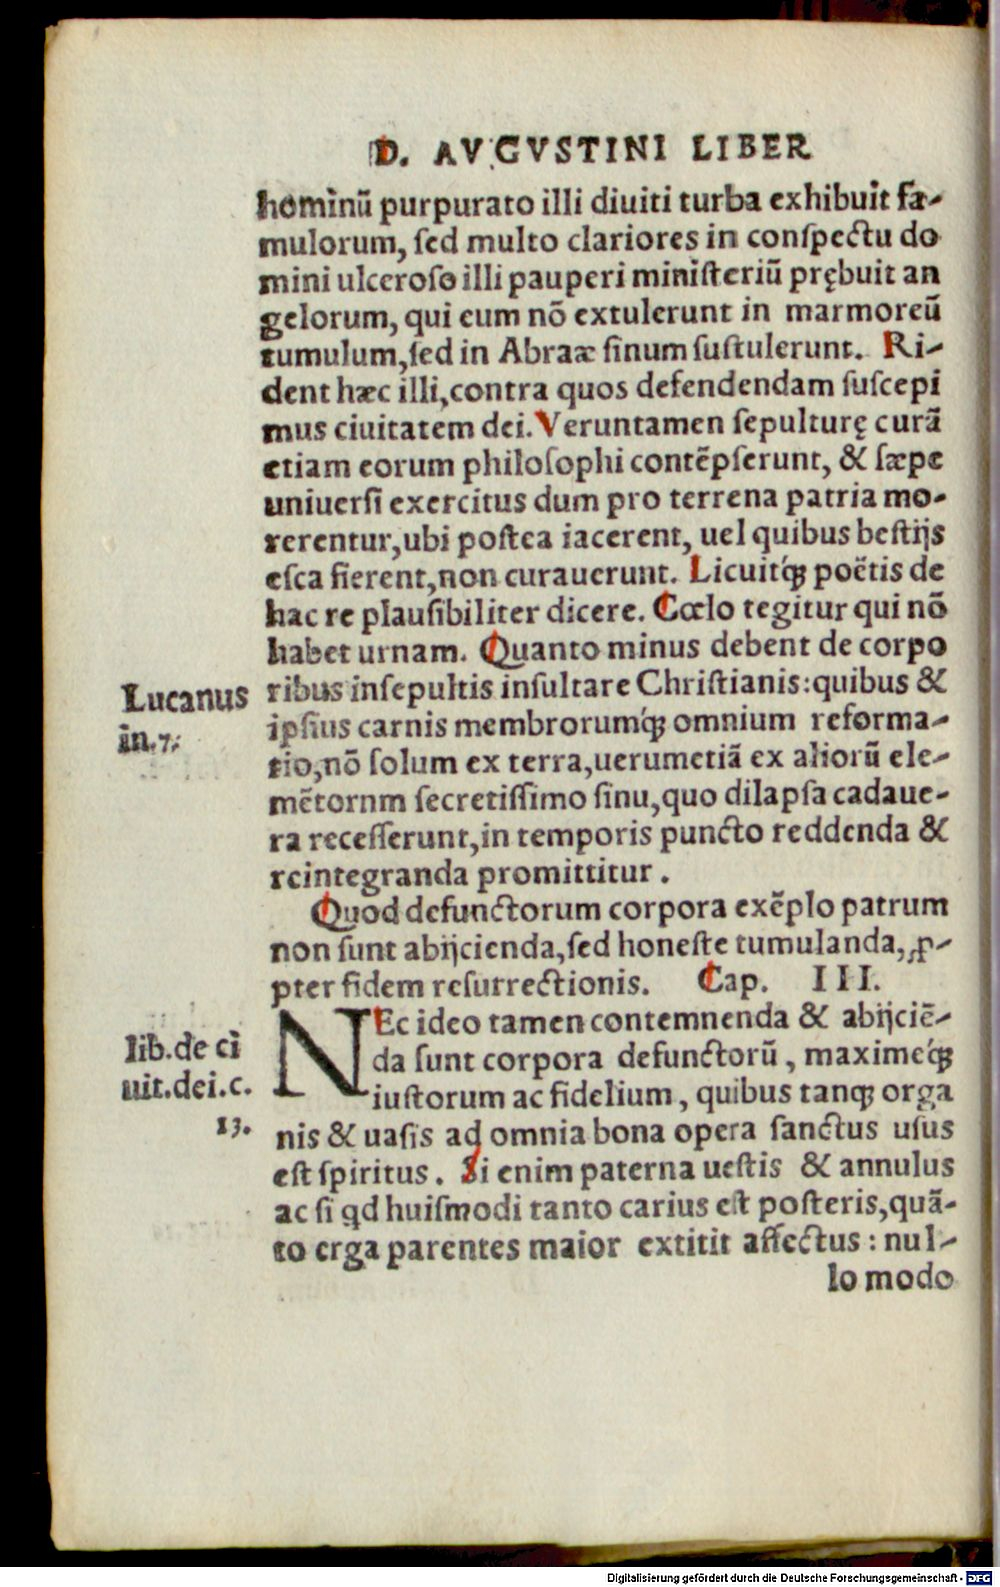 D. AVGVSTINI LIBER
hominū purpurato illi diuiti turba exhibuit fa-
mulorum, ſed multo clariores in conſpectu do
mini ulceroſo illi pauperi miniſteriū prębuit an
gelorum, qui eum nō extulerunt in marmoreū
tumulum, ſed in Abraæ ſinum ſuſtulerunt. Ri-
dent hæc illi, contra quos defendendam ſuſcepi
mus ciuitatem dei. Veruntamen ſepulturę curā
etiam eorum philoſophi contēpſerunt, & ſæpe
uniuerſi exercitus dum pro terrena patria mo-
rerentur, ubi poſtea iacerent, uel quibus beſtijs
eſca fierent, non curauerunt. Licuitq́ꝫ poëtis de
hac re plauſibiliter dicere. Cœlo tegitur qui nō
habet urnam. Quanto minus debent de corpo
Lucanus
in.7.
ribus inſepultis inſultare Chriſtianis: quibus &
ipſius carnis membrorumq́ꝫ omnium reforma-
tio, nō ſolum ex terra, uerumetiā ex aliorū ele-
mētornm ſecretiſſimo ſinu, quo dilapſa cadaue-
ra receſſerunt, in temporis puncto reddenda &
reintegranda promittitur.
Quod defunctorum corpora exēplo patrum
non ſunt abijcienda, ſed honeſte tumulanda, ꝓ-
pter fidem reſurrectionis. Cap. III.
lib. de ci
uit. dei. c.
13.
NEc ideo tamen contemnenda & abijciē-
da ſunt corpora defunctorū, maximeq́ꝫ
iuſtorum ac fidelium, quibus tanqꝫ orga
nis & uaſis ad omnia bona opera ſanctus uſus
eſt ſpiritus. Si enim paterna ueſtis & annulus
ac ſi qd huiſmodi tanto carius eſt poſteris, quā-
to erga parentes maior extitit affectus: nul-
lo modo
Digitalisierung gefördert durch die Deutsche Forschungsgemeinschaft - DFG